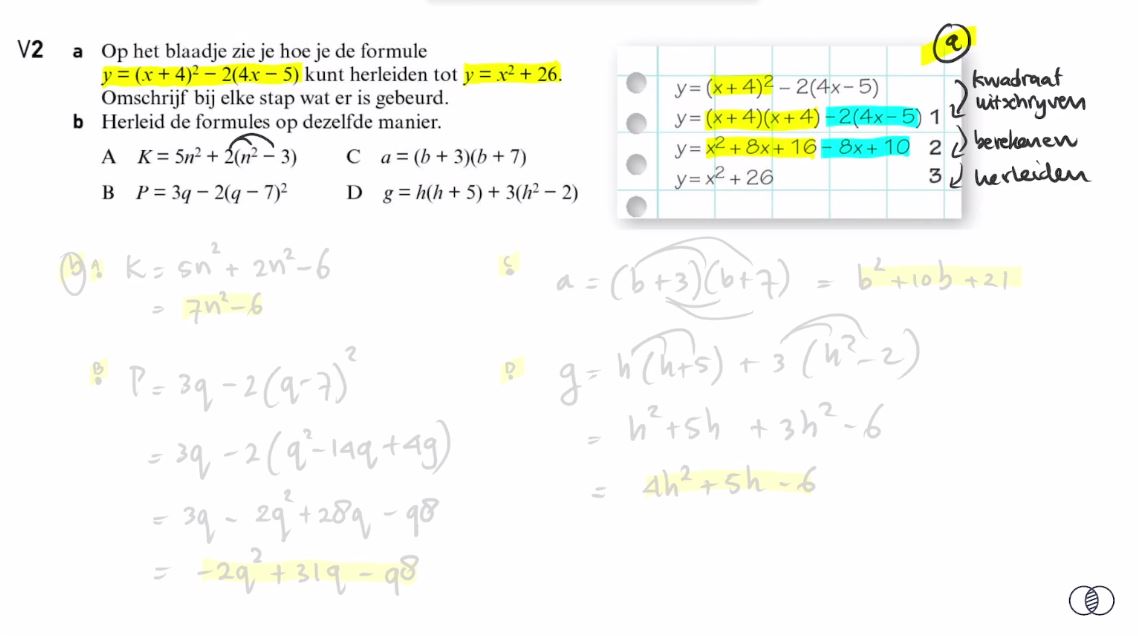 V2 a Op het blaadje zie je hoe je de formule
y = (x + 4)² − 2(4x − 5) kunt herleiden tot y = x² + 26.
Omschrijf bij elke stap wat er is gebeurd.
b Herleid de formules op dezelfde manier.
A K = 5n² + 2(n² − 3) C a = (b + 3)(b + 7)
B P = 3q − 2(q − 7)² D g = h(h + 5) + 3(h² − 2)
a
y = (x + 4)² − 2(4x − 5)
y = (x + 4)(x + 4) − 2(4x − 5) 1
y = x² + 8x + 16 − 8x + 10 2
y = x² + 26 3
kwadraat
uitschrijven
berekenen
herleiden
b A: K = 5n² + 2n² − 6
= 7n² − 6
B: P = 3q − 2(q − 7)²
= 3q − 2(q² − 14q + 49)
= 3q − 2q² + 28q − 98
= −2q² + 31q − 98
C: a = (b + 3)(b + 7) = b² + 10b + 21
D: g = h(h + 5) + 3(h² − 2)
= h² + 5h + 3h² − 6
= 4h² + 5h − 6